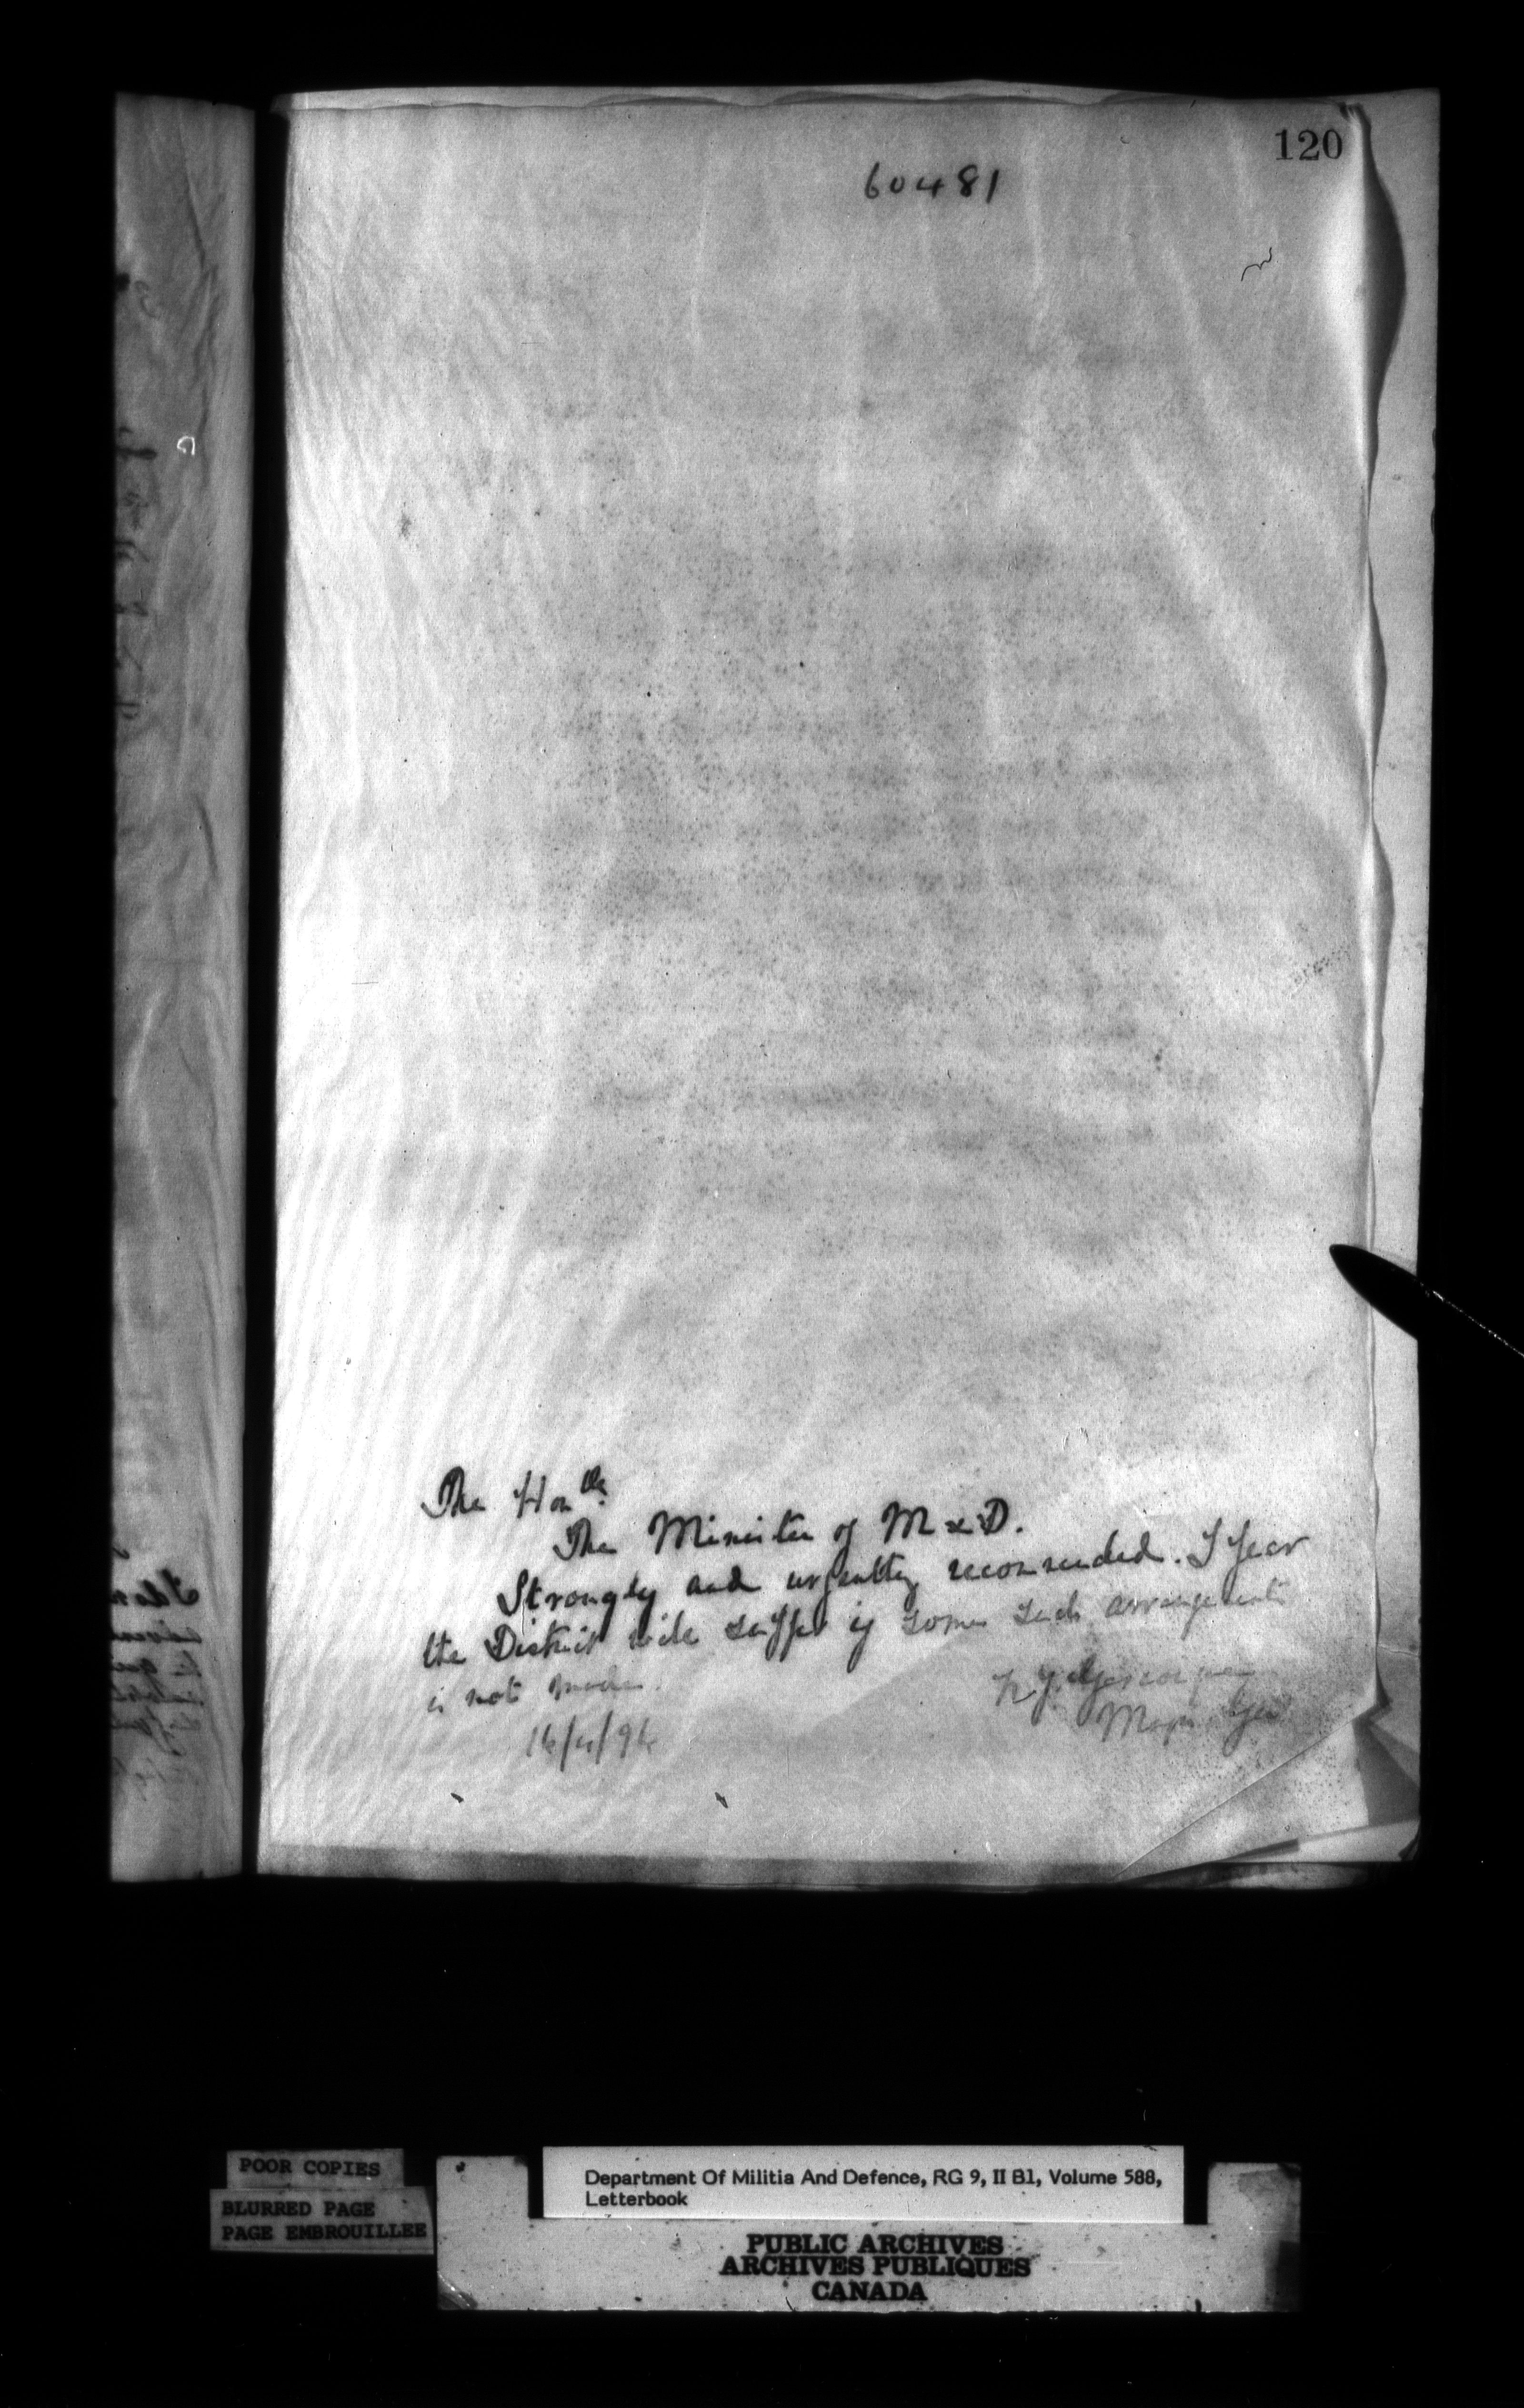 120
60481
The Honble
The Minister of M & D.
Strongly and urgently recommended. I fear
the District will suffer if some such arrangement
is not made.
Gascoigne
Major Gen
16/4/96
POOR COPIES
BLURRED PAGE
PAGE EMBROUILLEE
Department Of Militia And Defence, RG 9, II B1, Volume 588,
Letterbook
PUBLIC ARCHIVES
ARCHIVES PUBLIQUES
CANADA